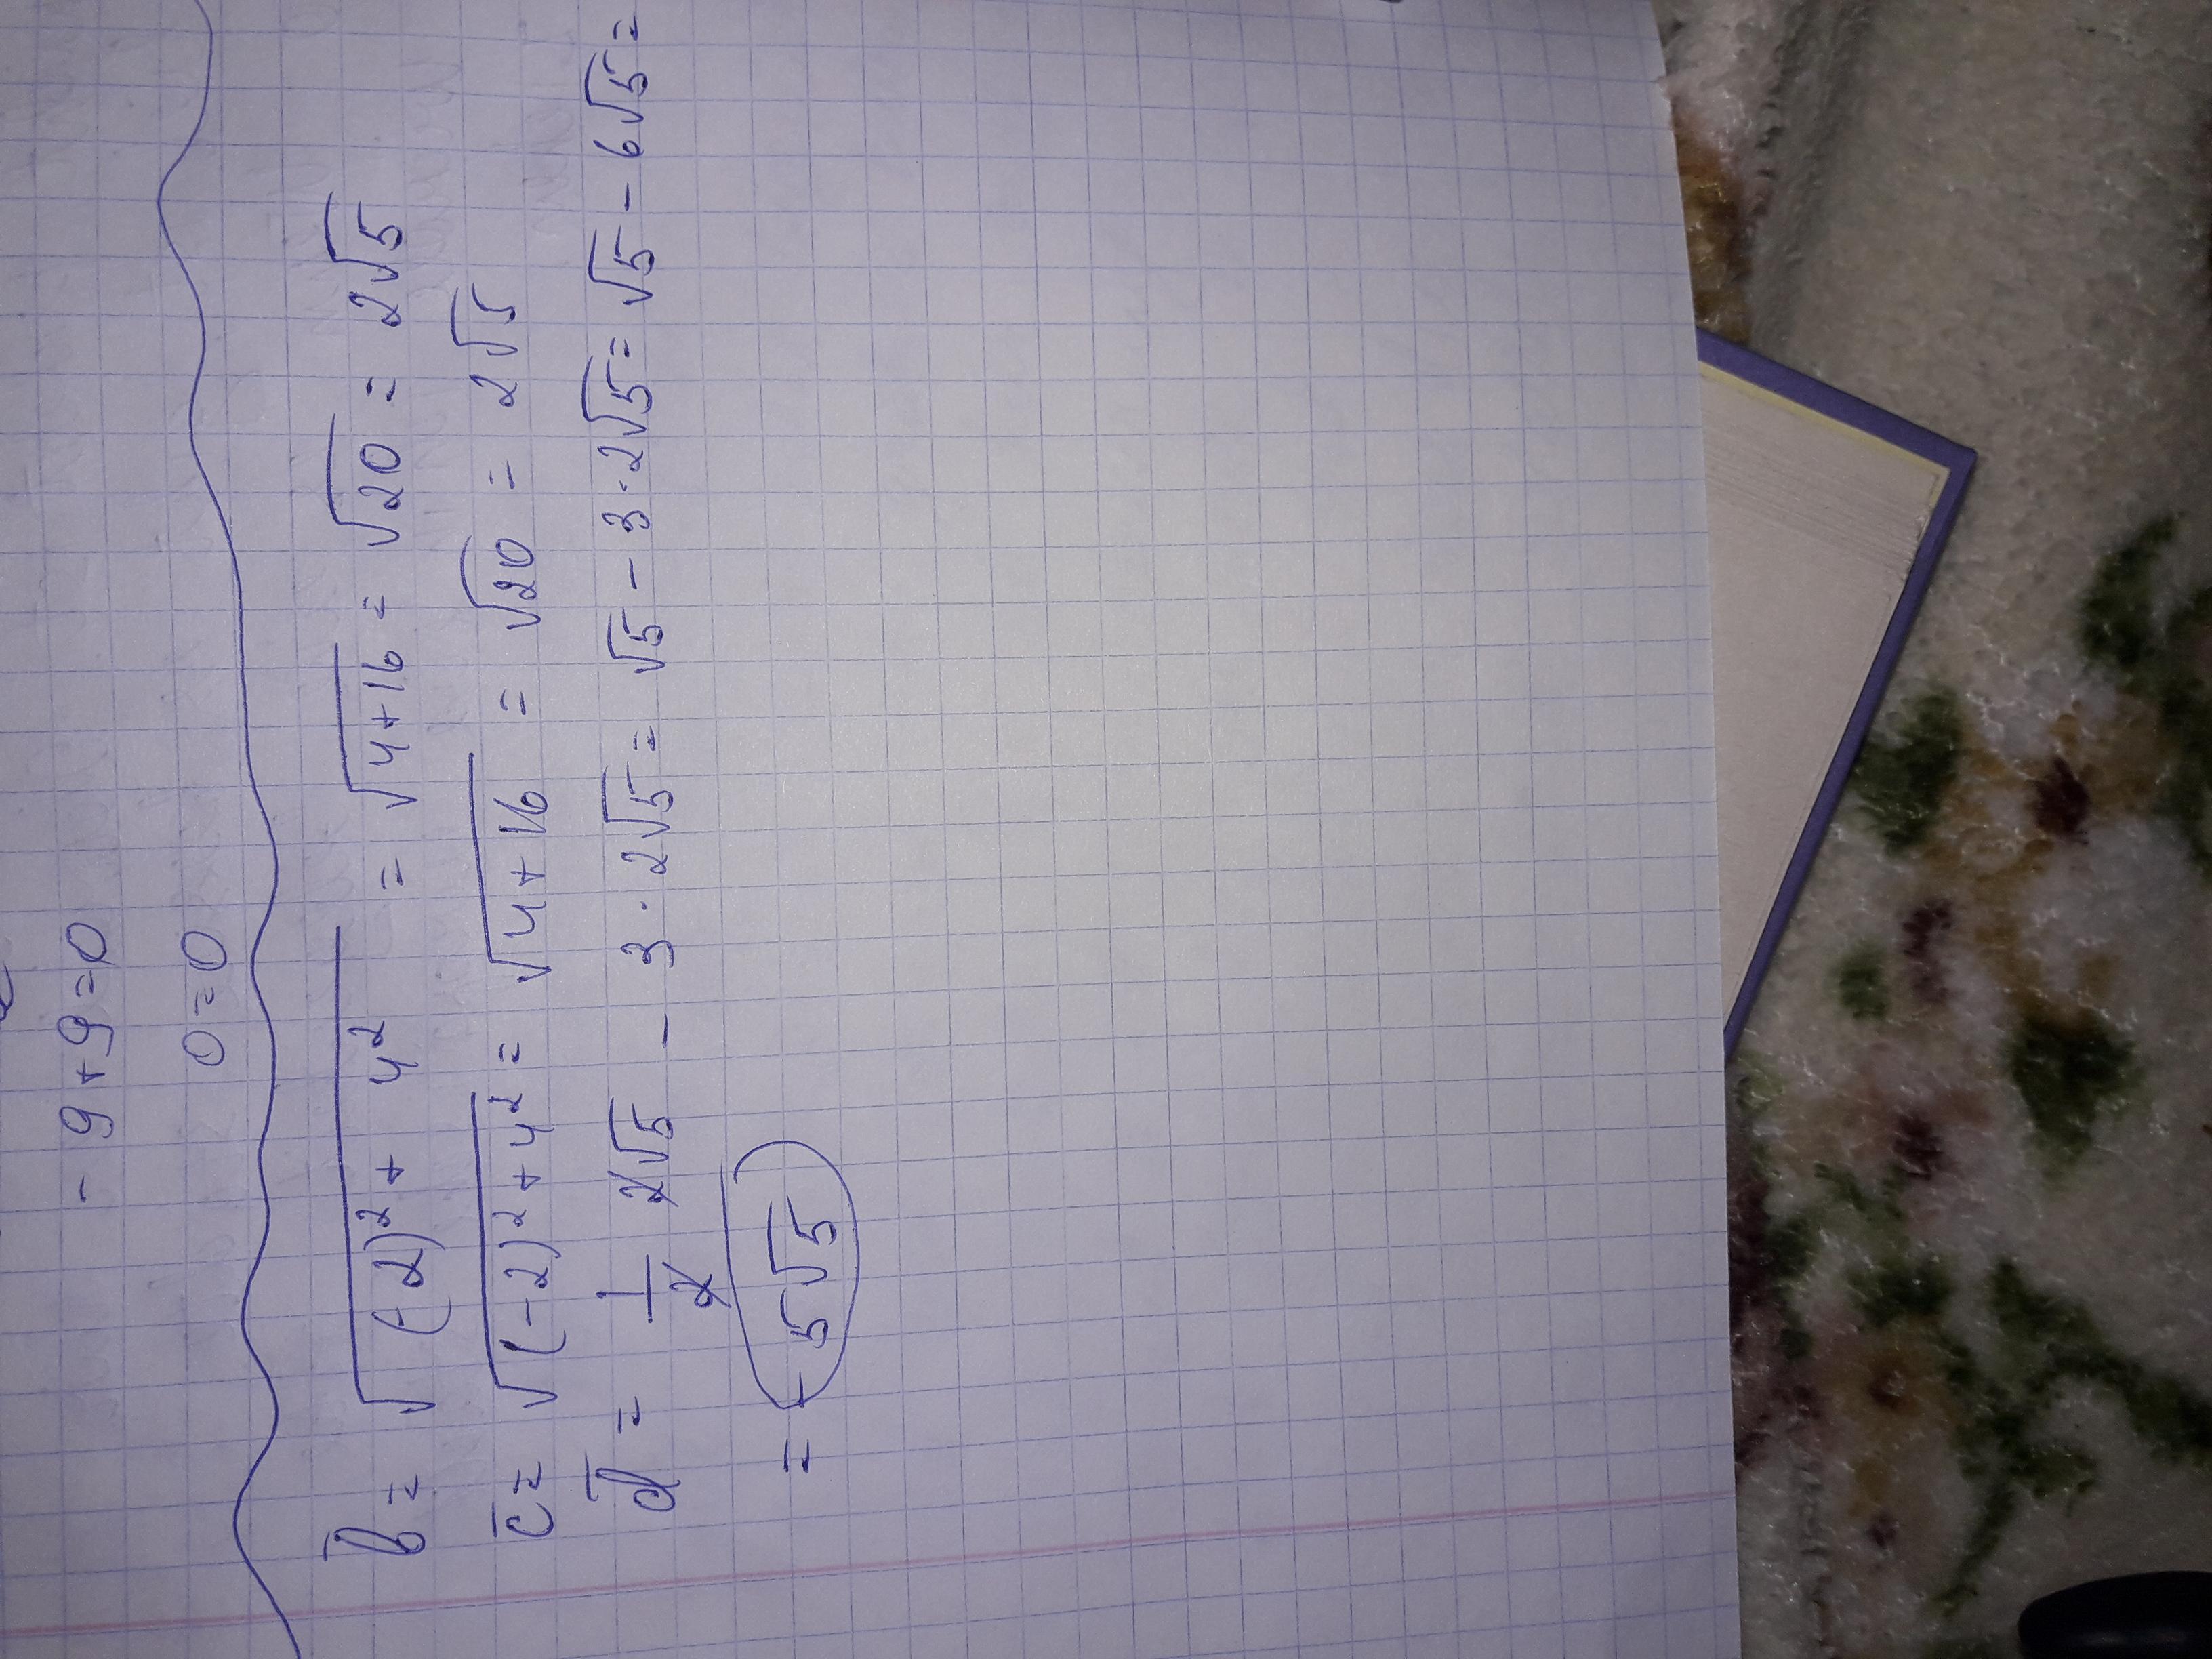 - 9 + 9 = 0
0 = 0
b̄ = √((-2)² + 4²) = √(4+16) = √20 = 2√5
c̄ = √((-2)² + 4²) = √(4+16) = √20 = 2√5
d̄ = 1/2 2√5 - 3 · 2√5 = √5 - 3 · 2√5 = √5 - 6√5 =
= - 5√5